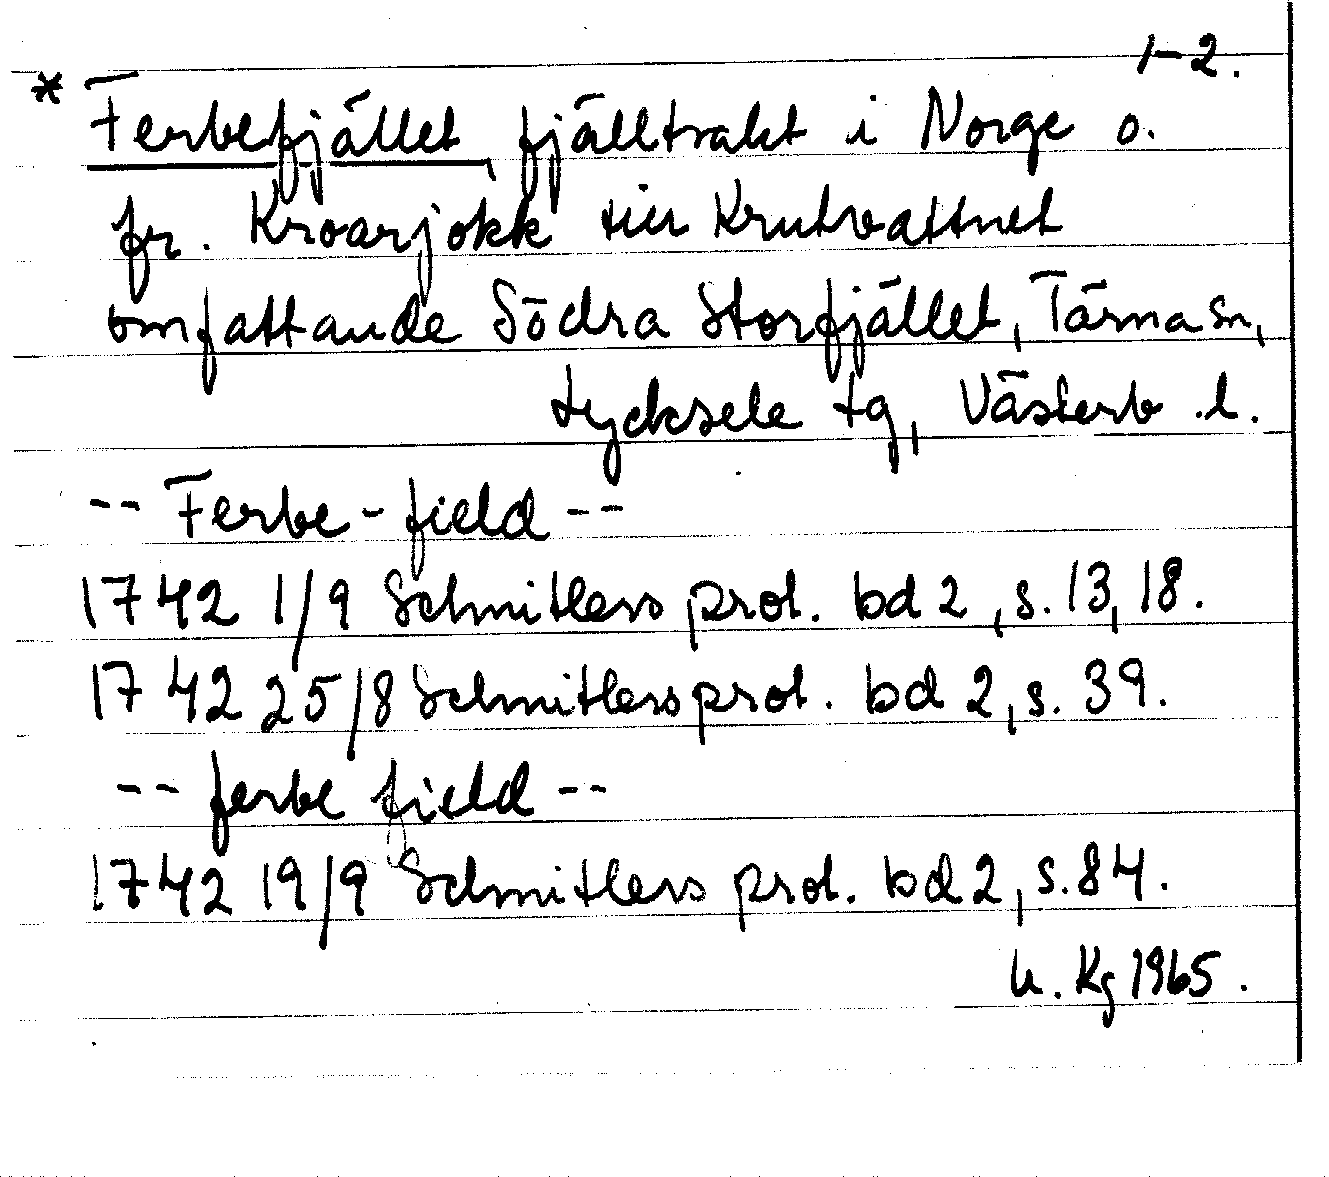 1-2.
* Ferbefjället, fjälltrakt i Norge o.
fr. Kroarjokk till Krutvattnet
omfattande Södra Storfjället, Tärna sn,
Lycksele tg, Västerb. l.
-- Ferbe-field --
1742 1/9 Schnitlers prot. bd 2, s. 13, 18.
1742 25/8 Schnitlers prot. bd 2, s. 39.
-- ferbe field --
1742 19/9 Schnitlers prot. bd 2, s. 84.
U. Kg 1965.